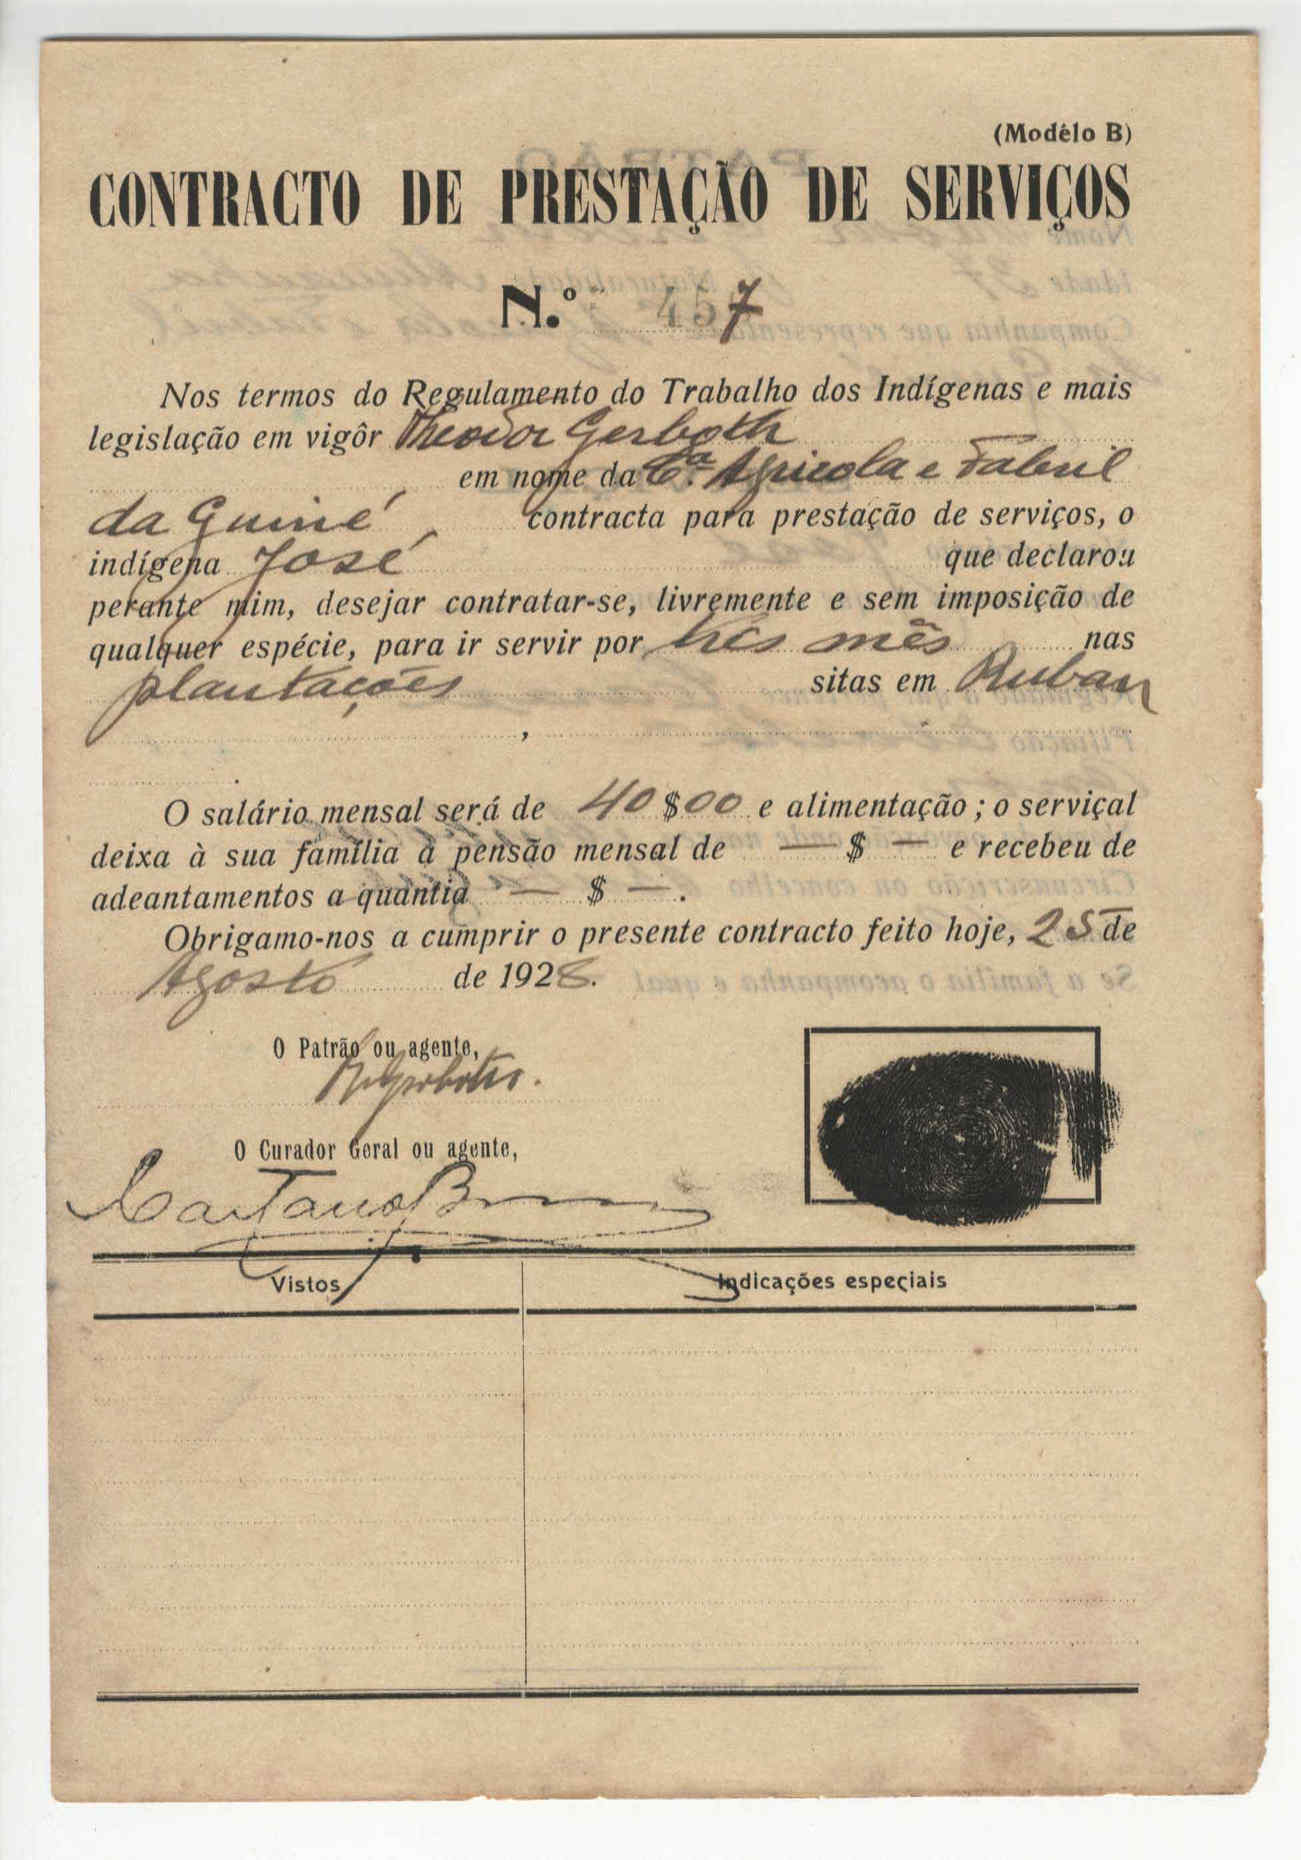 (Modêlo B)
CONTRACTO DE PRESTAÇÃO DE SERVIÇOS
N.º 457
Nos termos do Regulamento do Trabalho dos Indígenas e mais
legislação em vigôr Theodor Gerboth
em nome da Cª. Agricola e Fabril
da Guiné contracta para prestação de serviços, o
indígena José que declarou
perante mim, desejar contratar-se, livremente e sem imposição de
qualquer espécie, para ir servir por três mês nas
plantações sitas em Ruban
O salário mensal será de 40$00 e alimentação; o serviçal
deixa à sua família a pensão mensal de — $ — e recebeu de
adeantamentos a quantia — $ —.
Obrigamo-nos a cumprir o presente contracto feito hoje, 25 de
Agosto de 1928.
O Patrão ou agente,
O Curador Geral ou agente,
Caetano
Vistos
Indicações especiais